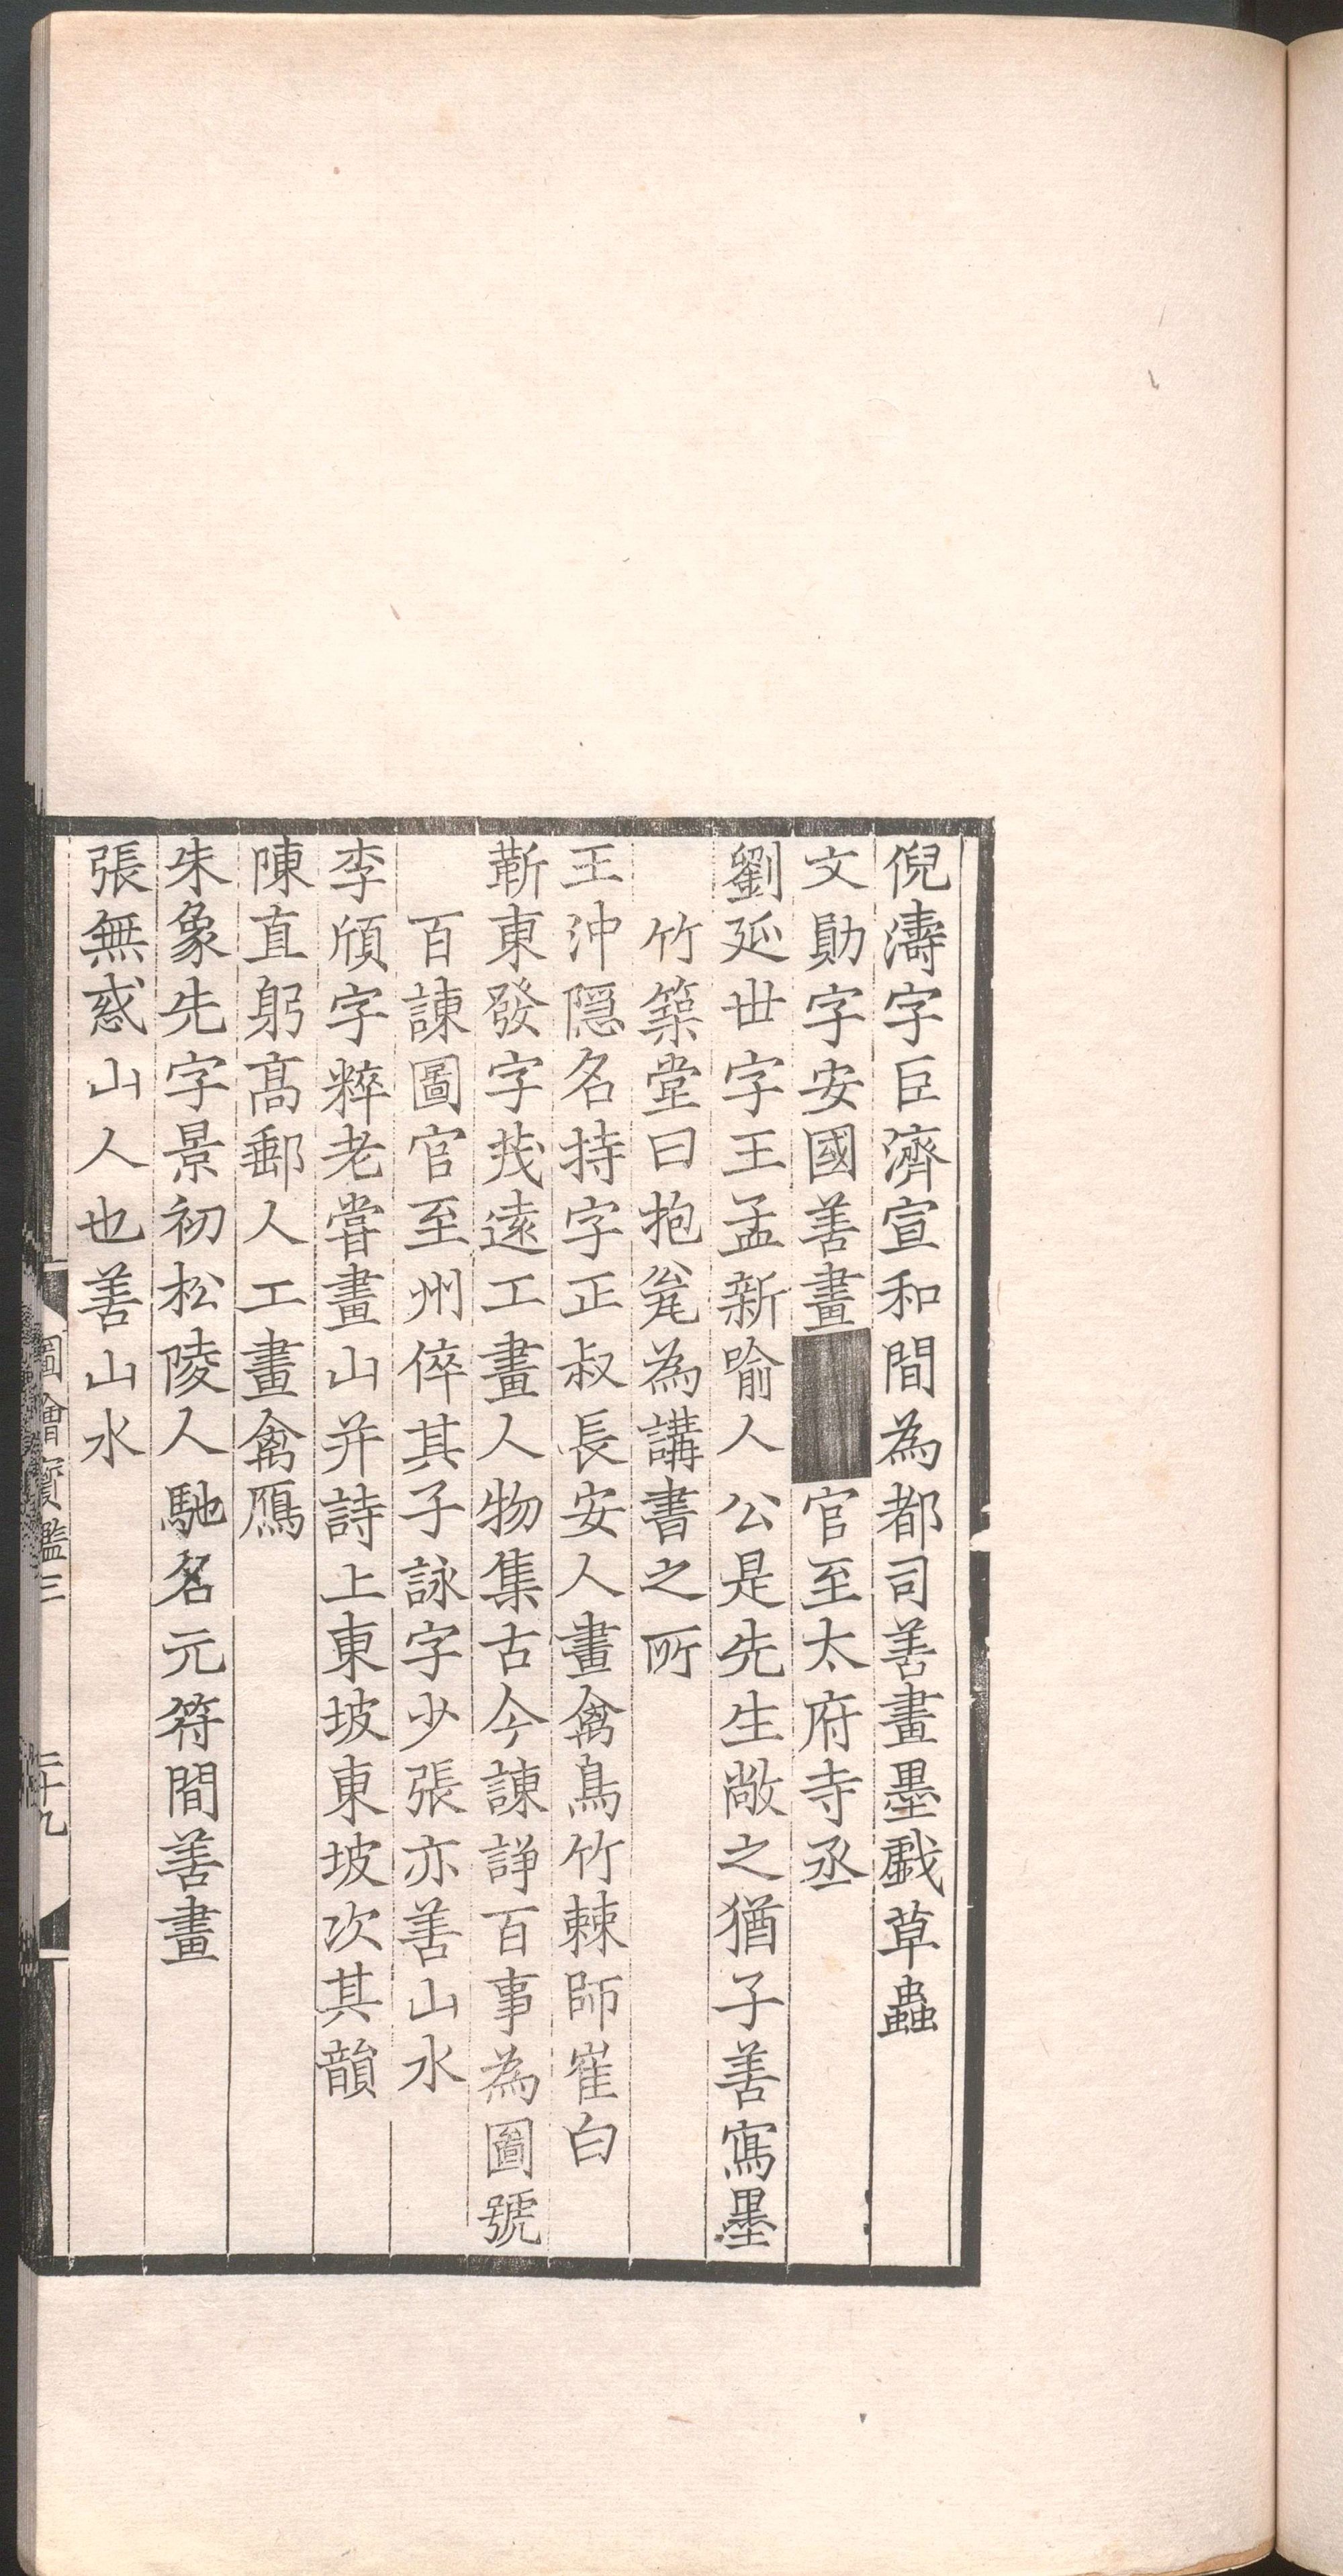 倪濤字巨濟宣和間為都司善畫墨戱草蟲
文勛字安國善畫官至太府寺丞
劉延世字王孟新喻人公是先生敞之猶子善寫墨
竹築堂曰抱瓮為講書之所
王沖隠名持字正叔長安人畫禽鳥竹棘師崔白
靳東發字茂遠工畫人物集古今諫諍百事為圖號
百諫圖官至州倅其子詠字少張亦善山水
李頎字粹老嘗畫山并詩上東坡東坡次其韻
陳直躬髙郵人工畫禽鴈
朱象先字景初松陵人馳名元符間善畫
張無惑山人也善山水
圖繪寶鑑三
二十九